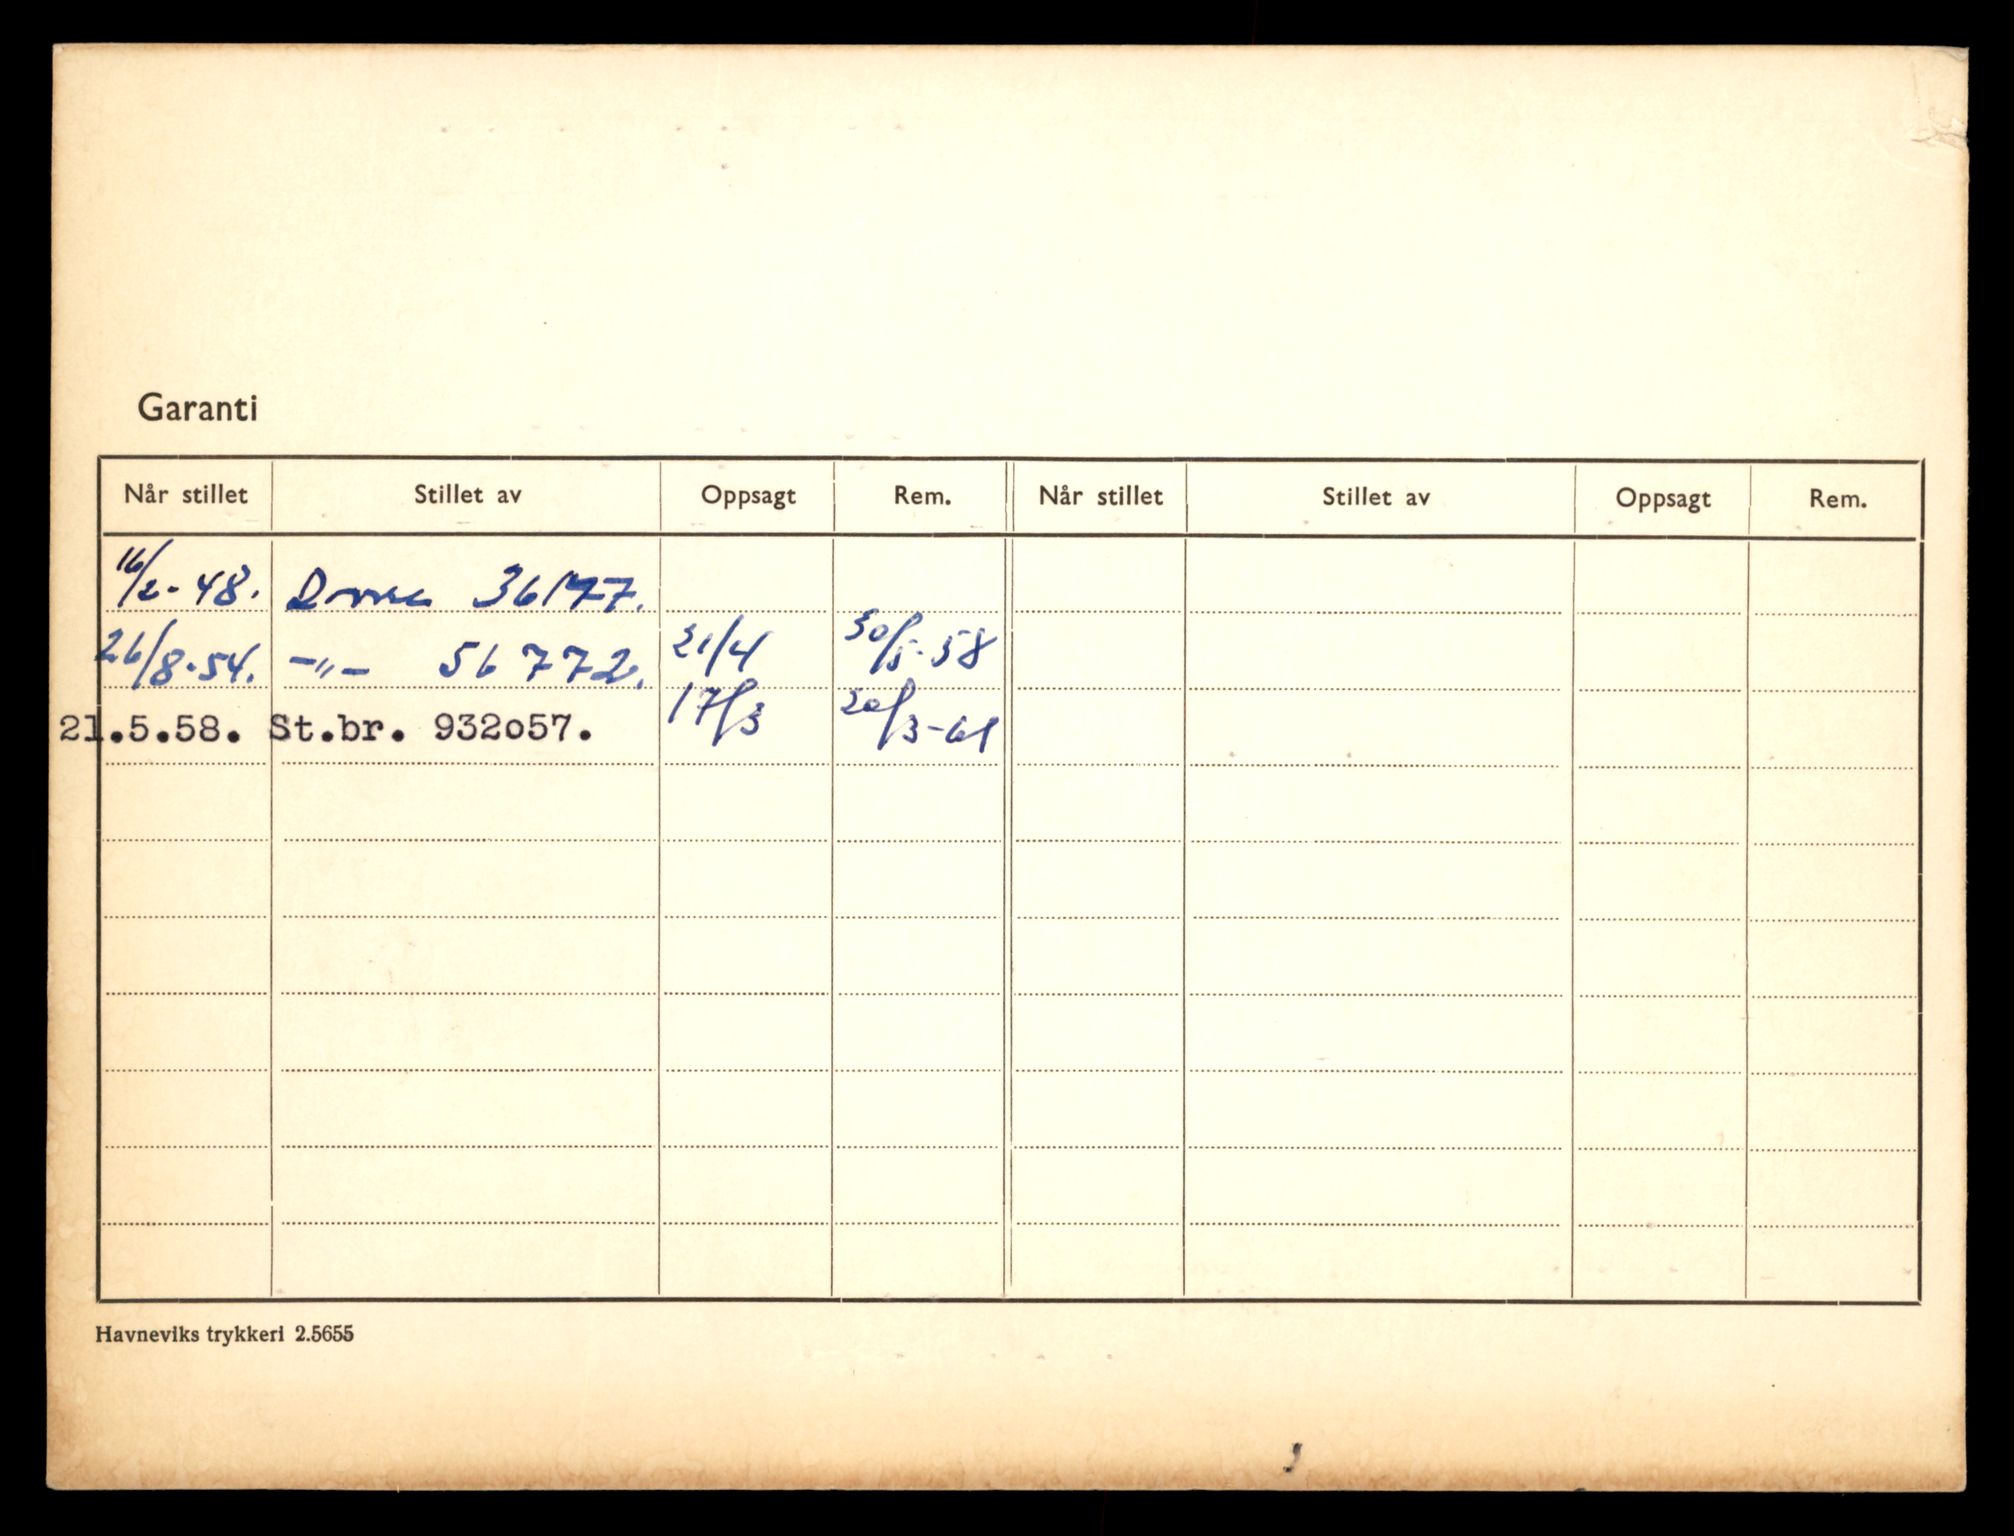 Garanti
Når stillet Stillet av Oppsagt Rem. Når stillet Stillet av Oppsagt Rem.
16/2-48. 36177.
26/8-54. -"- 56772. 21/4 30/5-58
21.5.58. St.br. 932o57. 17/3 20/3-61
Havneviks trykkeri 2.5655